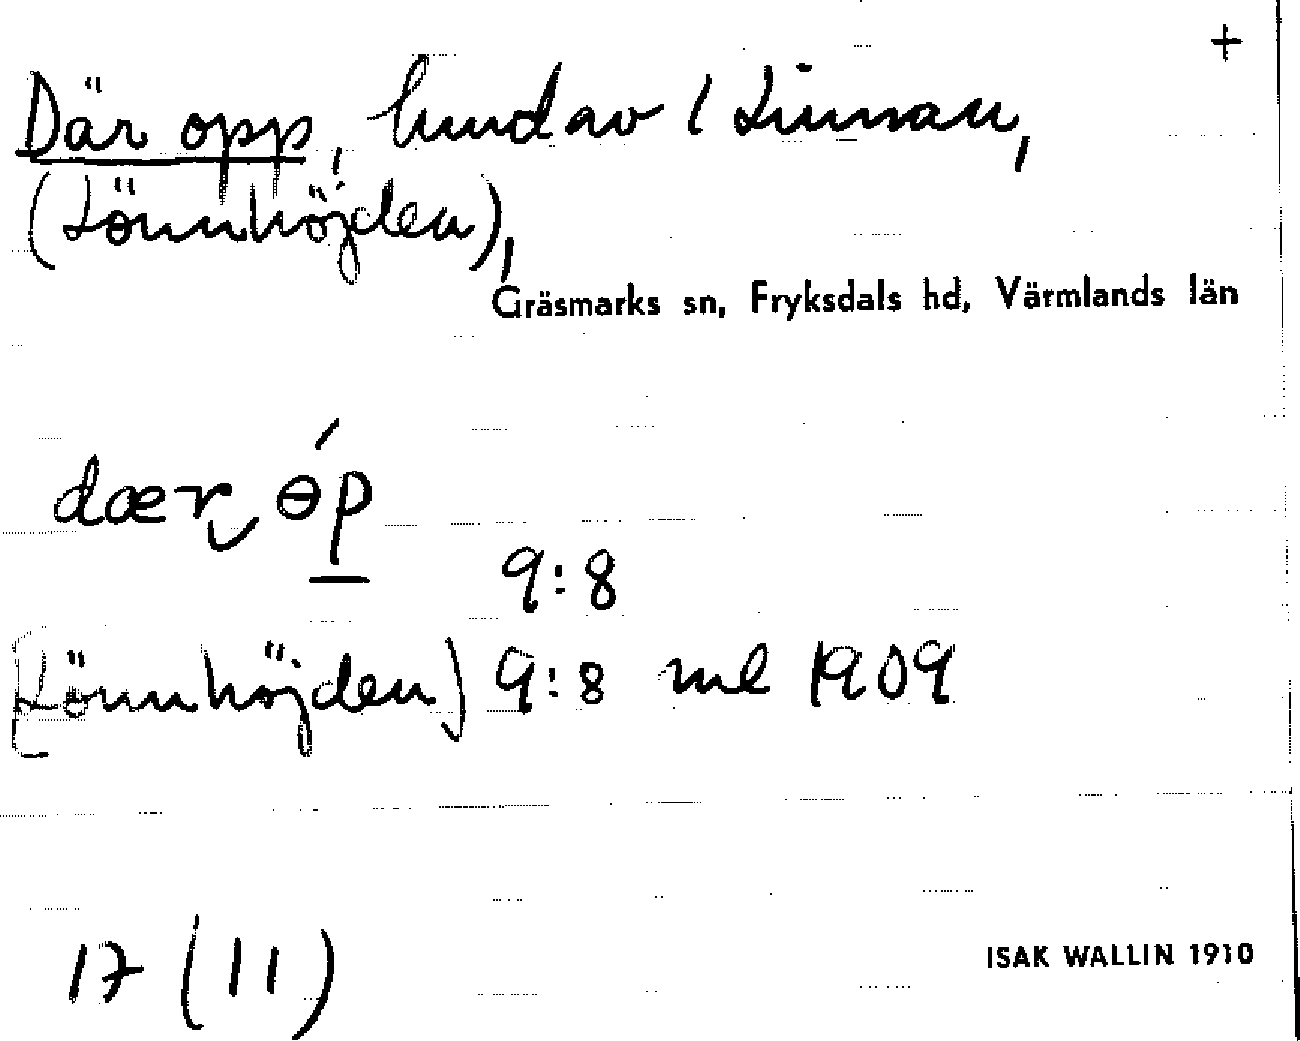 +
Där opp, hmd av 1 Linnan,
(Lönnhöjden),
Gräsmarks sn, Fryksdals hd, Värmlands län
dær ɵ́p
9:8
[Lönnhöjden] 9:8 ml 1909
17 (11)
ISAK WALLIN 1910